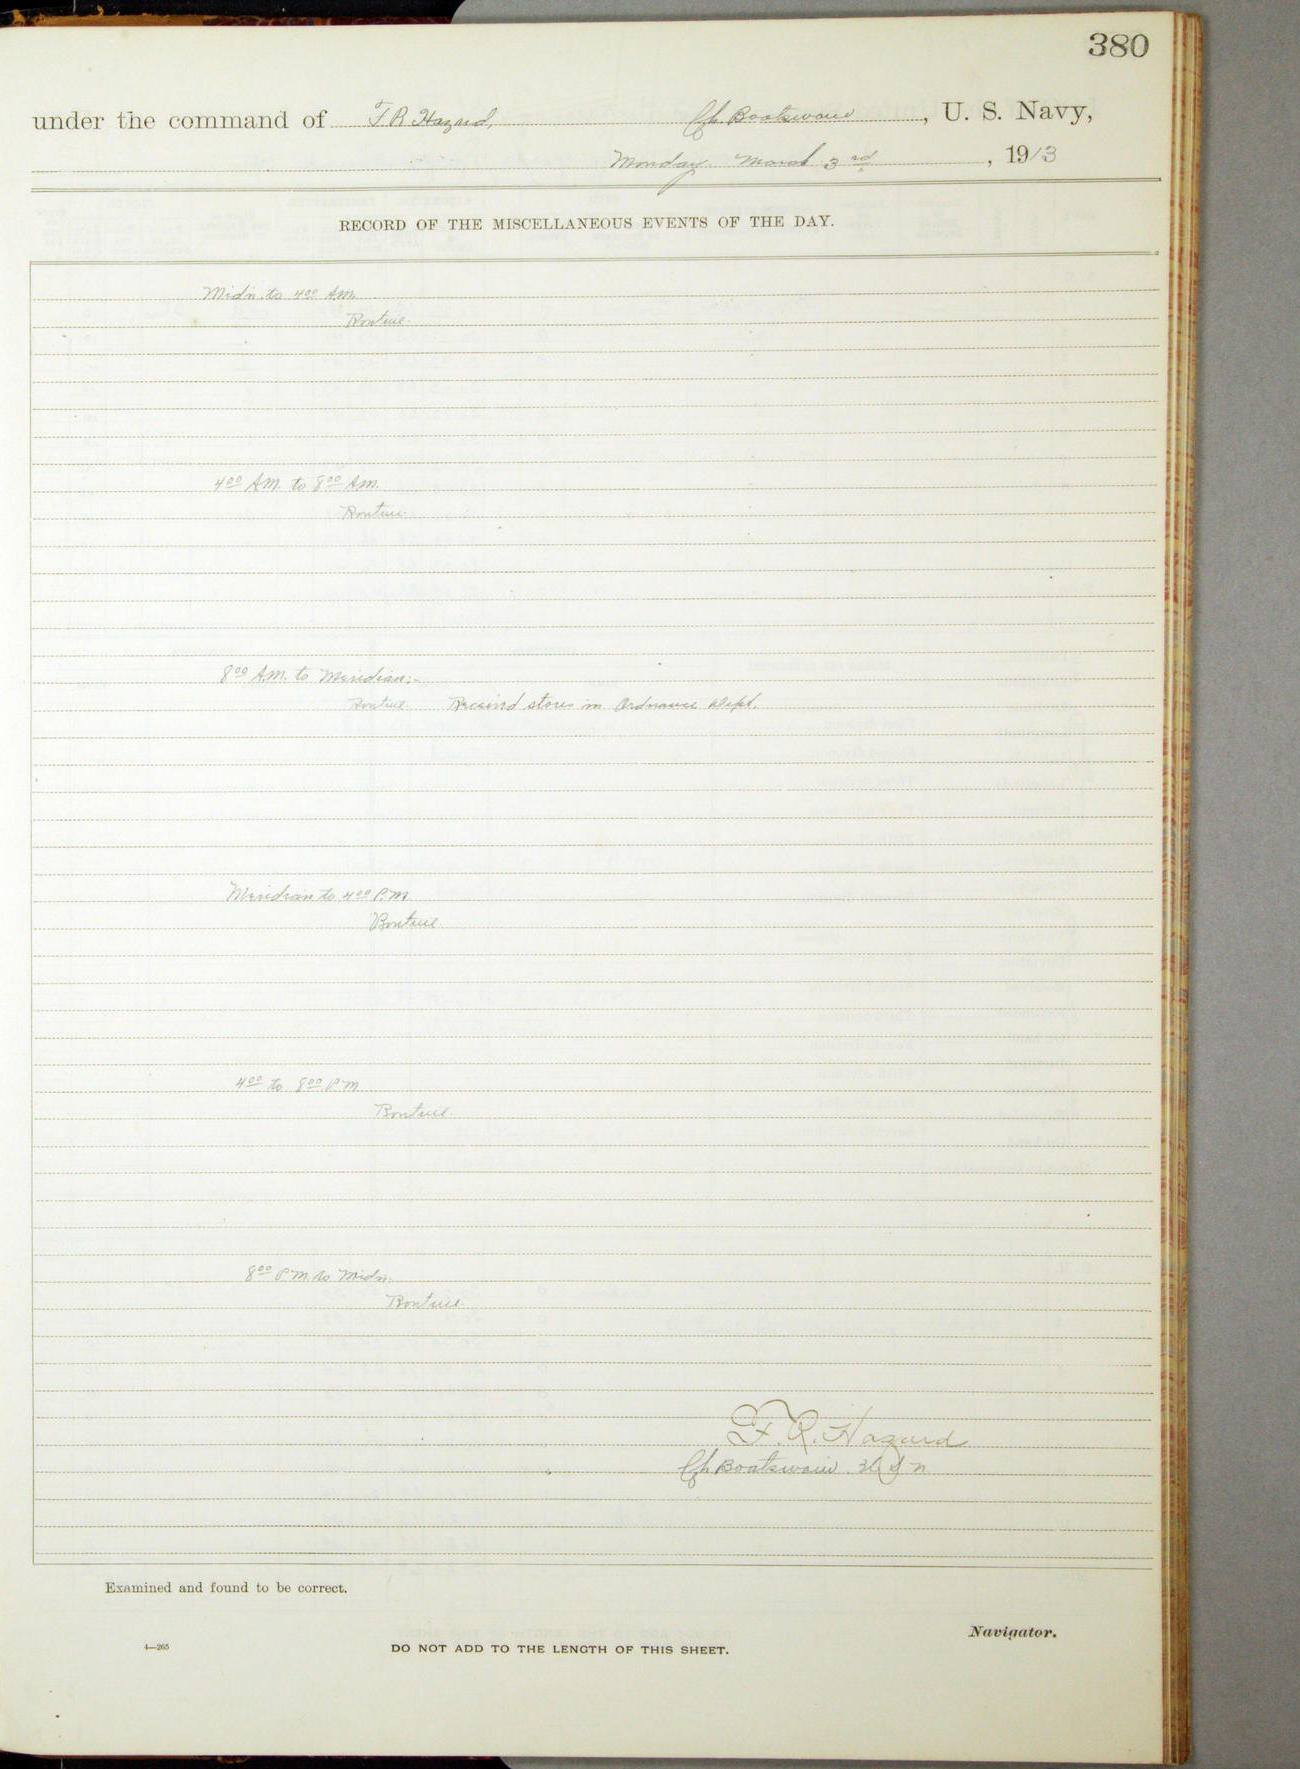 380
under the command of F R Hazard, Ch. Boatswain, U. S. Navy,
Monday March 3rd, 1913
RECORD OF THE MISCELLANEOUS EVENTS OF THE DAY.
Midn. to 4 00 A.M.
Routine.
4 00 A.M. to 8 00 A.M.
Routine.
8 00 A.M. to Meridian:-
Routine. Received stores in Ordnance Dept.
Meridian to 4 00 P.M.
Routine.
4 00 to 8 00 P.M
Routine.
8 00 P.M. to Midn.
Routine.
F. R. Hazard
Ch. Boatswain U.S.N.
Examined and found to be correct.
Navigator.
4—265
DO NOT ADD TO THE LENGTH OF THIS SHEET.